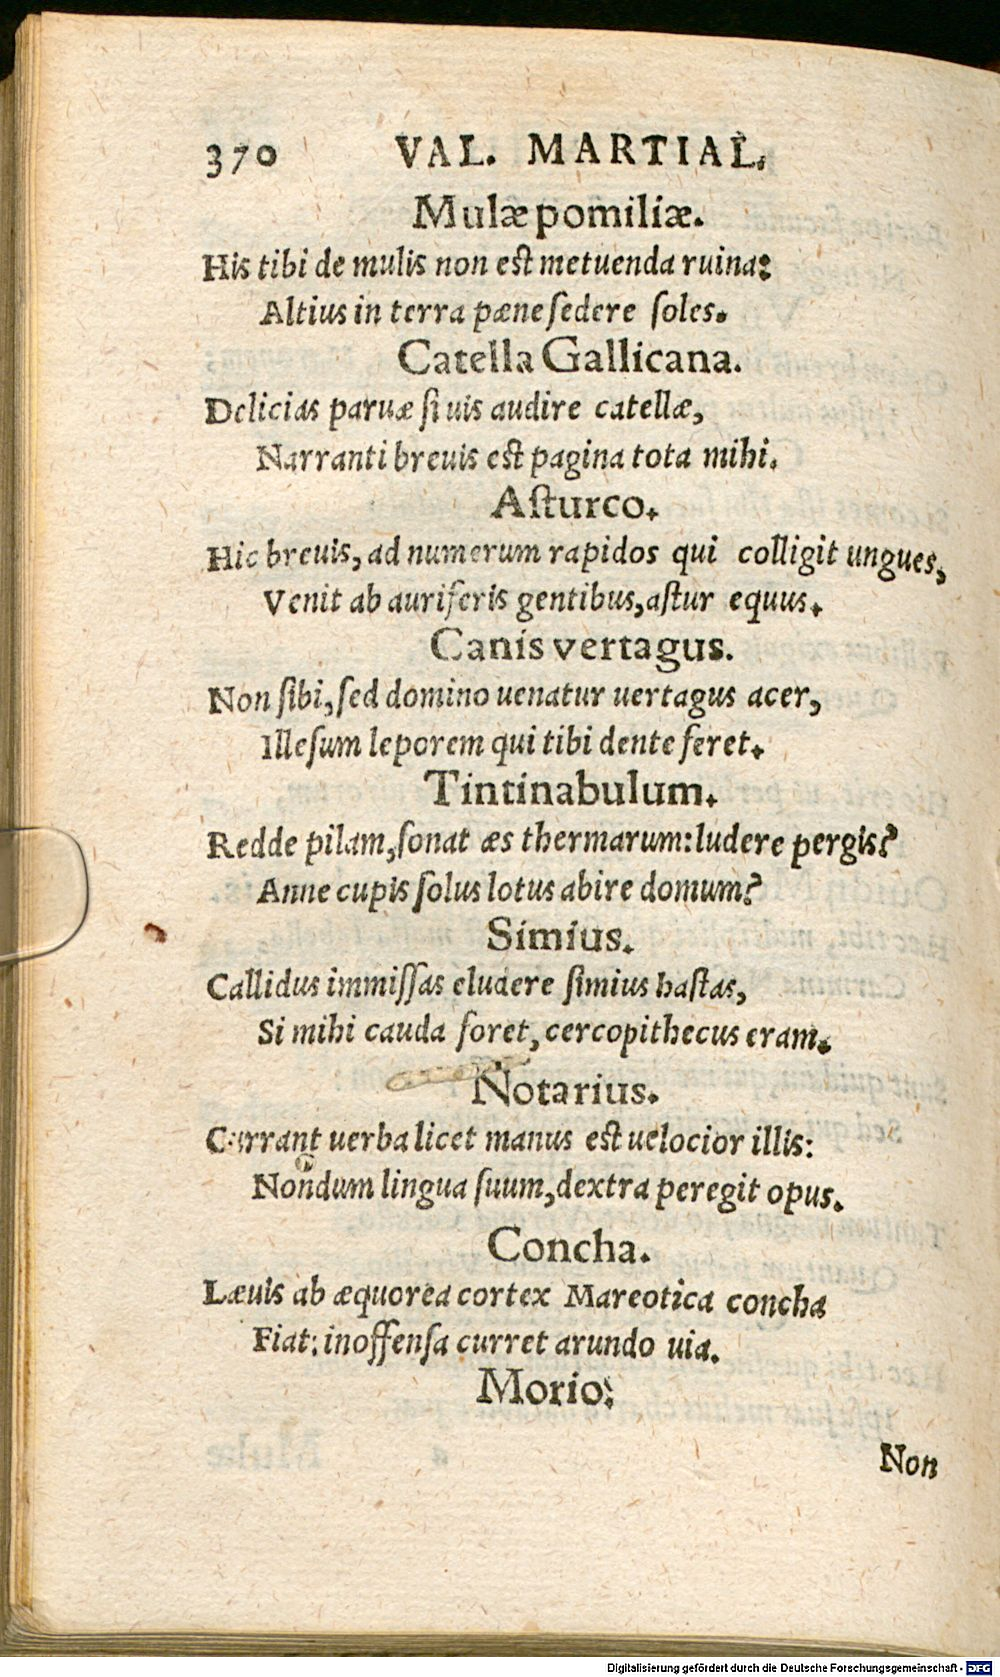 370 VAL. MARTIAL.
Mulæ pomiliæ.
His tibi de mulis non est metuenda ruina:
Altius in terra pæne ſedere ſoles.
Catella Gallicana.
Delicias paruæ ſi uis audire catellæ,
Narranti breuis est pagina tota mihi.
Aſturco.
Hic breuis, ad numerum rapidos qui colligit ungues,
Venit ab auriferis gentibus, aſtur equus.
Canis vertagus.
Non ſibi, ſed domino uenatur uertagus acer,
Illeſum leporem qui tibi dente feret.
Tintinabulum.
Redde pilam, ſonat æs thermarum: ludere pergis?
Anne cupis ſolus lotus abire domum?
Simius.
Callidus immiſſas eludere ſimius haſtas,
Si mihi cauda foret, cercopithecus eram.
Notarius.
Currant uerba licet manus est uelocior illis:
Nondum lingua ſuum, dextra peregit opus.
Concha.
Læuis ab æquorea cortex Mareotica concha
Fiat: inoffenſa curret arundo uia.
Morio:
Non
Digitalisierung gefördert durch die Deutsche Forschungsgemeinschaft - DFG